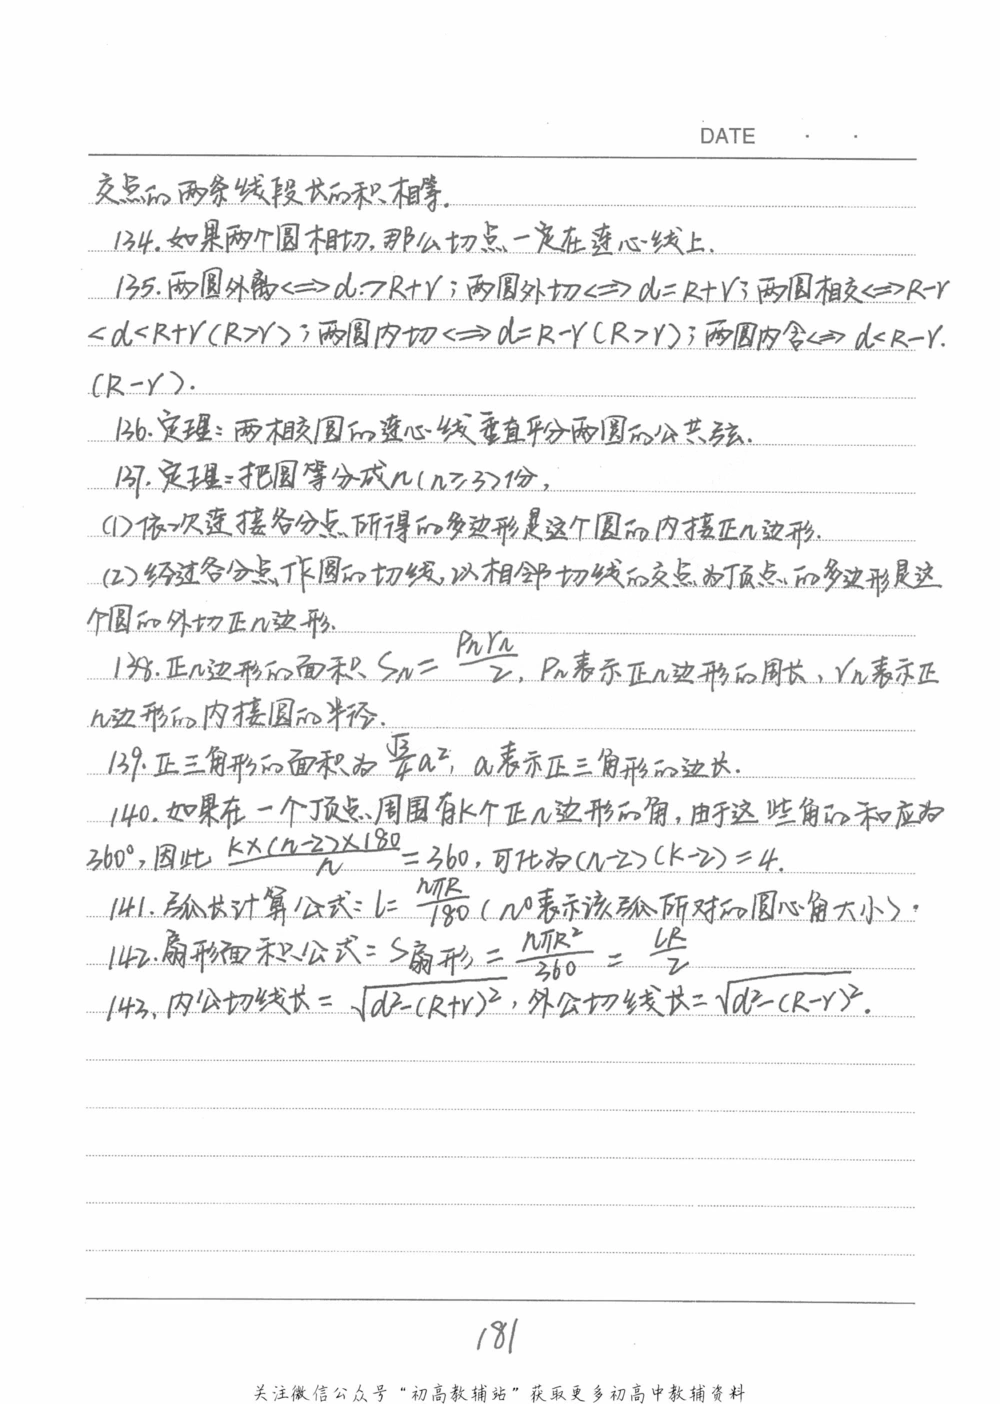 DATE · ·
交点的两条线段长的积相等.
134.如果两个圆相切,那么切点一定在连心线上.
135.两圆外离<=>d>R+r;两圆外切<=>d=R+r;两圆相交<=>R-r
<d<R+r(R>r);两圆内切<=>d=R-r(R>r);两圆内含<=>d<R-r.
(R-r).
136.定理:两相交圆的连心线垂直平分两圆的公共弦.
137.定理:把圆等分成n(n≥3)份,
(1)依次连接各分点所得的多边形是这个圆的内接正n边形.
(2)经过各分点作圆的切线,以相邻切线的交点为顶点的多边形是这
个圆的外切正n边形.
138.正n边形的面积Sn=Pnrn/2,Pn表示正n边形的周长,rn表示正
n边形的内接圆的半径.
139.正三角形的面积为√3/4a²,a表示正三角形的边长.
140.如果在一个顶点周围有K个正n边形的角,由于这些角的和应为
360°,因此K×(n-2)×180/n=360,可化为(n-2)(K-2)=4.
141.弧长计算公式:l=nπR/180(n°表示该弧所对的圆心角大小).
142.扇形面积公式:S扇形=nπR²/360=LR/2
143.内公切线长=√d²-(R+r)²,外公切线长=√d²-(R-r)².
181
关注微信公众号“初高教辅站”获取更多初高中教辅资料